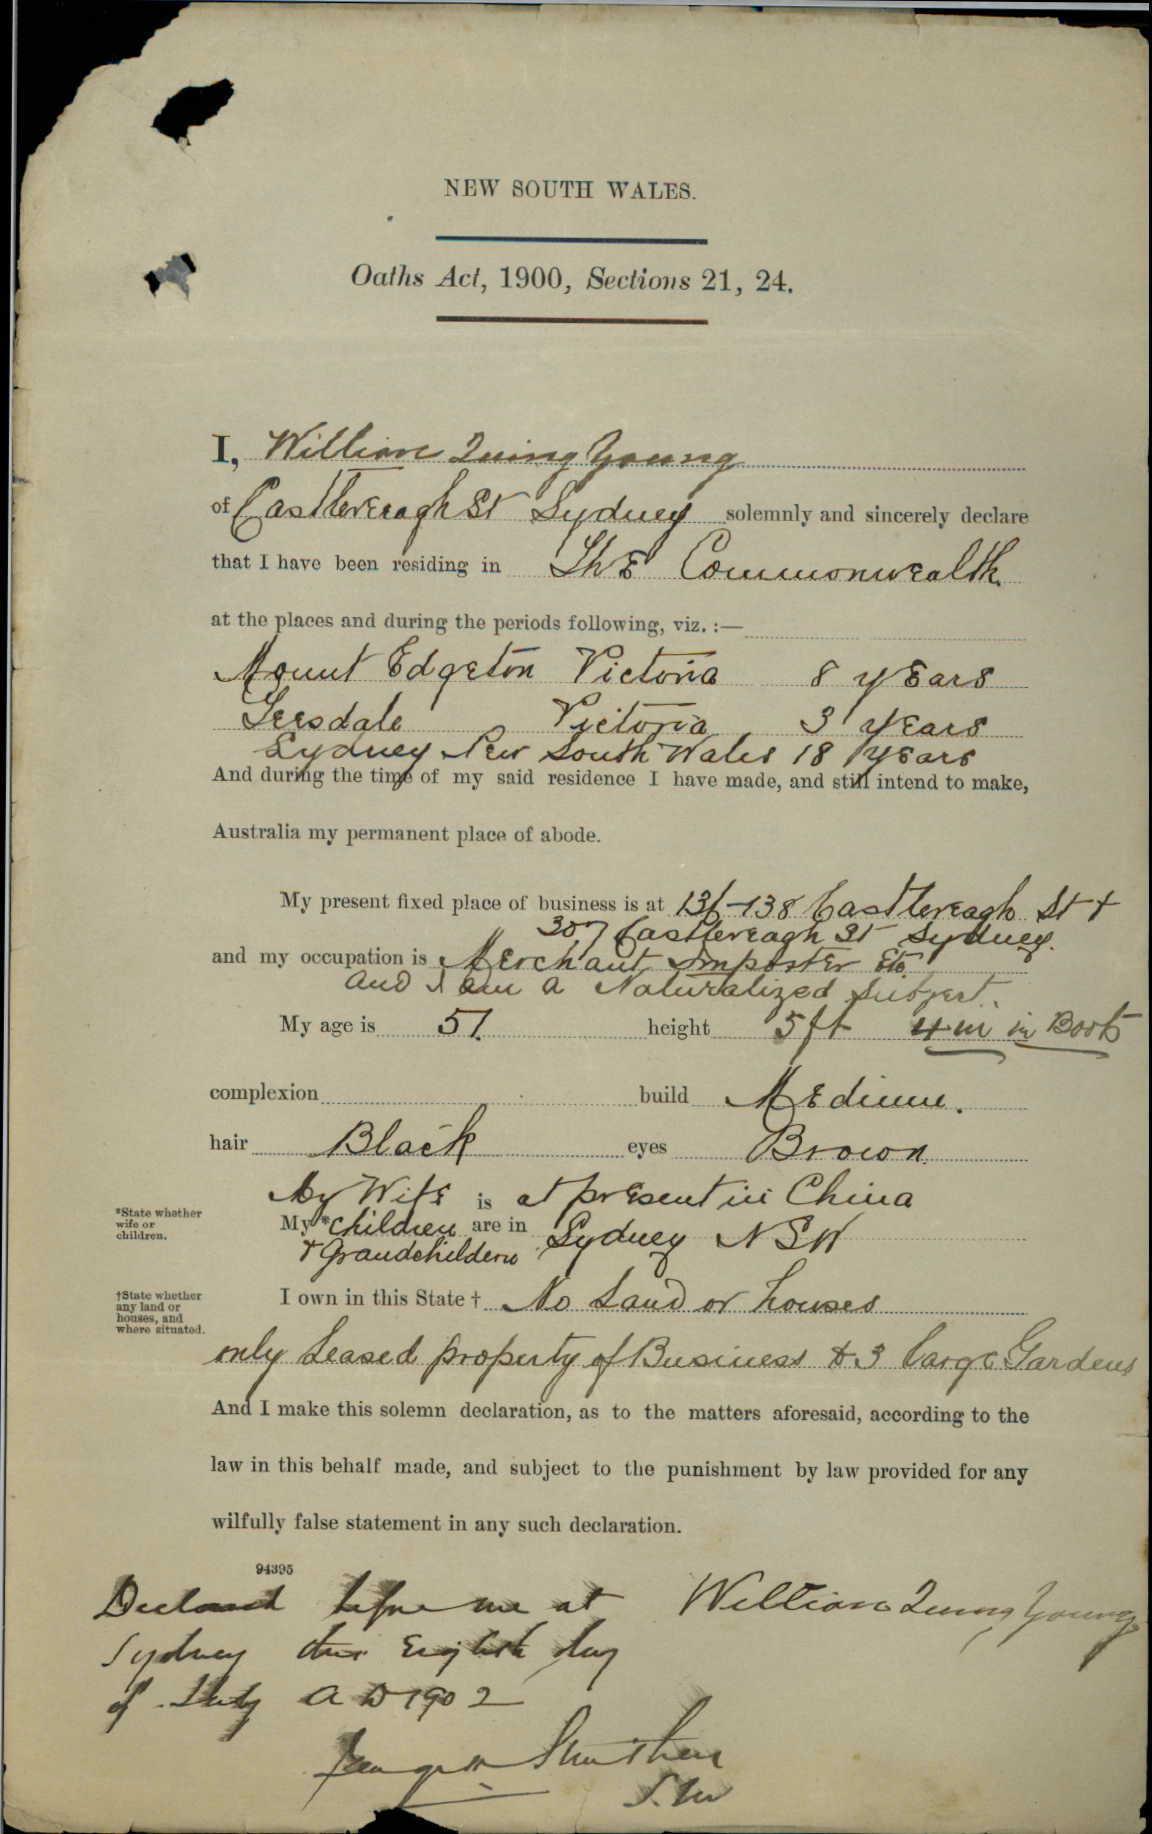 NEW SOUTH WALES.
Oaths Act, 1900, Sections 21, 24.
I, William Quing Young
of Castlereagh St Sydney solemnly and sincerely declare
that I have been residing in The Commonwealth
at the places and during the periods following, viz. :—
Mount Edgeton Victoria 8 years
Victoria 3 years
Sydney New South Wales 18 years
And during the time of my said residence I have made, and still intend to make,
Australia my permanent place of abode.
My present fixed place of business is at 136-138 Castlereagh St &
307 Castlereagh St Sydney.
and my occupation is Merchant Importer Etc
and I am a Naturalized Subject.
My age is 51. height 5 ft 4 in in Boots
complexion build Medium.
hair Black eyes Brown
My Wife is at present in China
*State whether wife or children.
My * children are in Sydney NSW
& Grandchildern
†State whether any land or houses, and where situated.
I own in this State † No Land or houses
only Leased property of Business & 3 large Gardens
And I make this solemn declaration, as to the matters aforesaid, according to the
law in this behalf made, and subject to the punishment by law provided for any
wilfully false statement in any such declaration.
94395
Declared before me at William Quing Young
Sydney this Eighth day
of July A D 1902